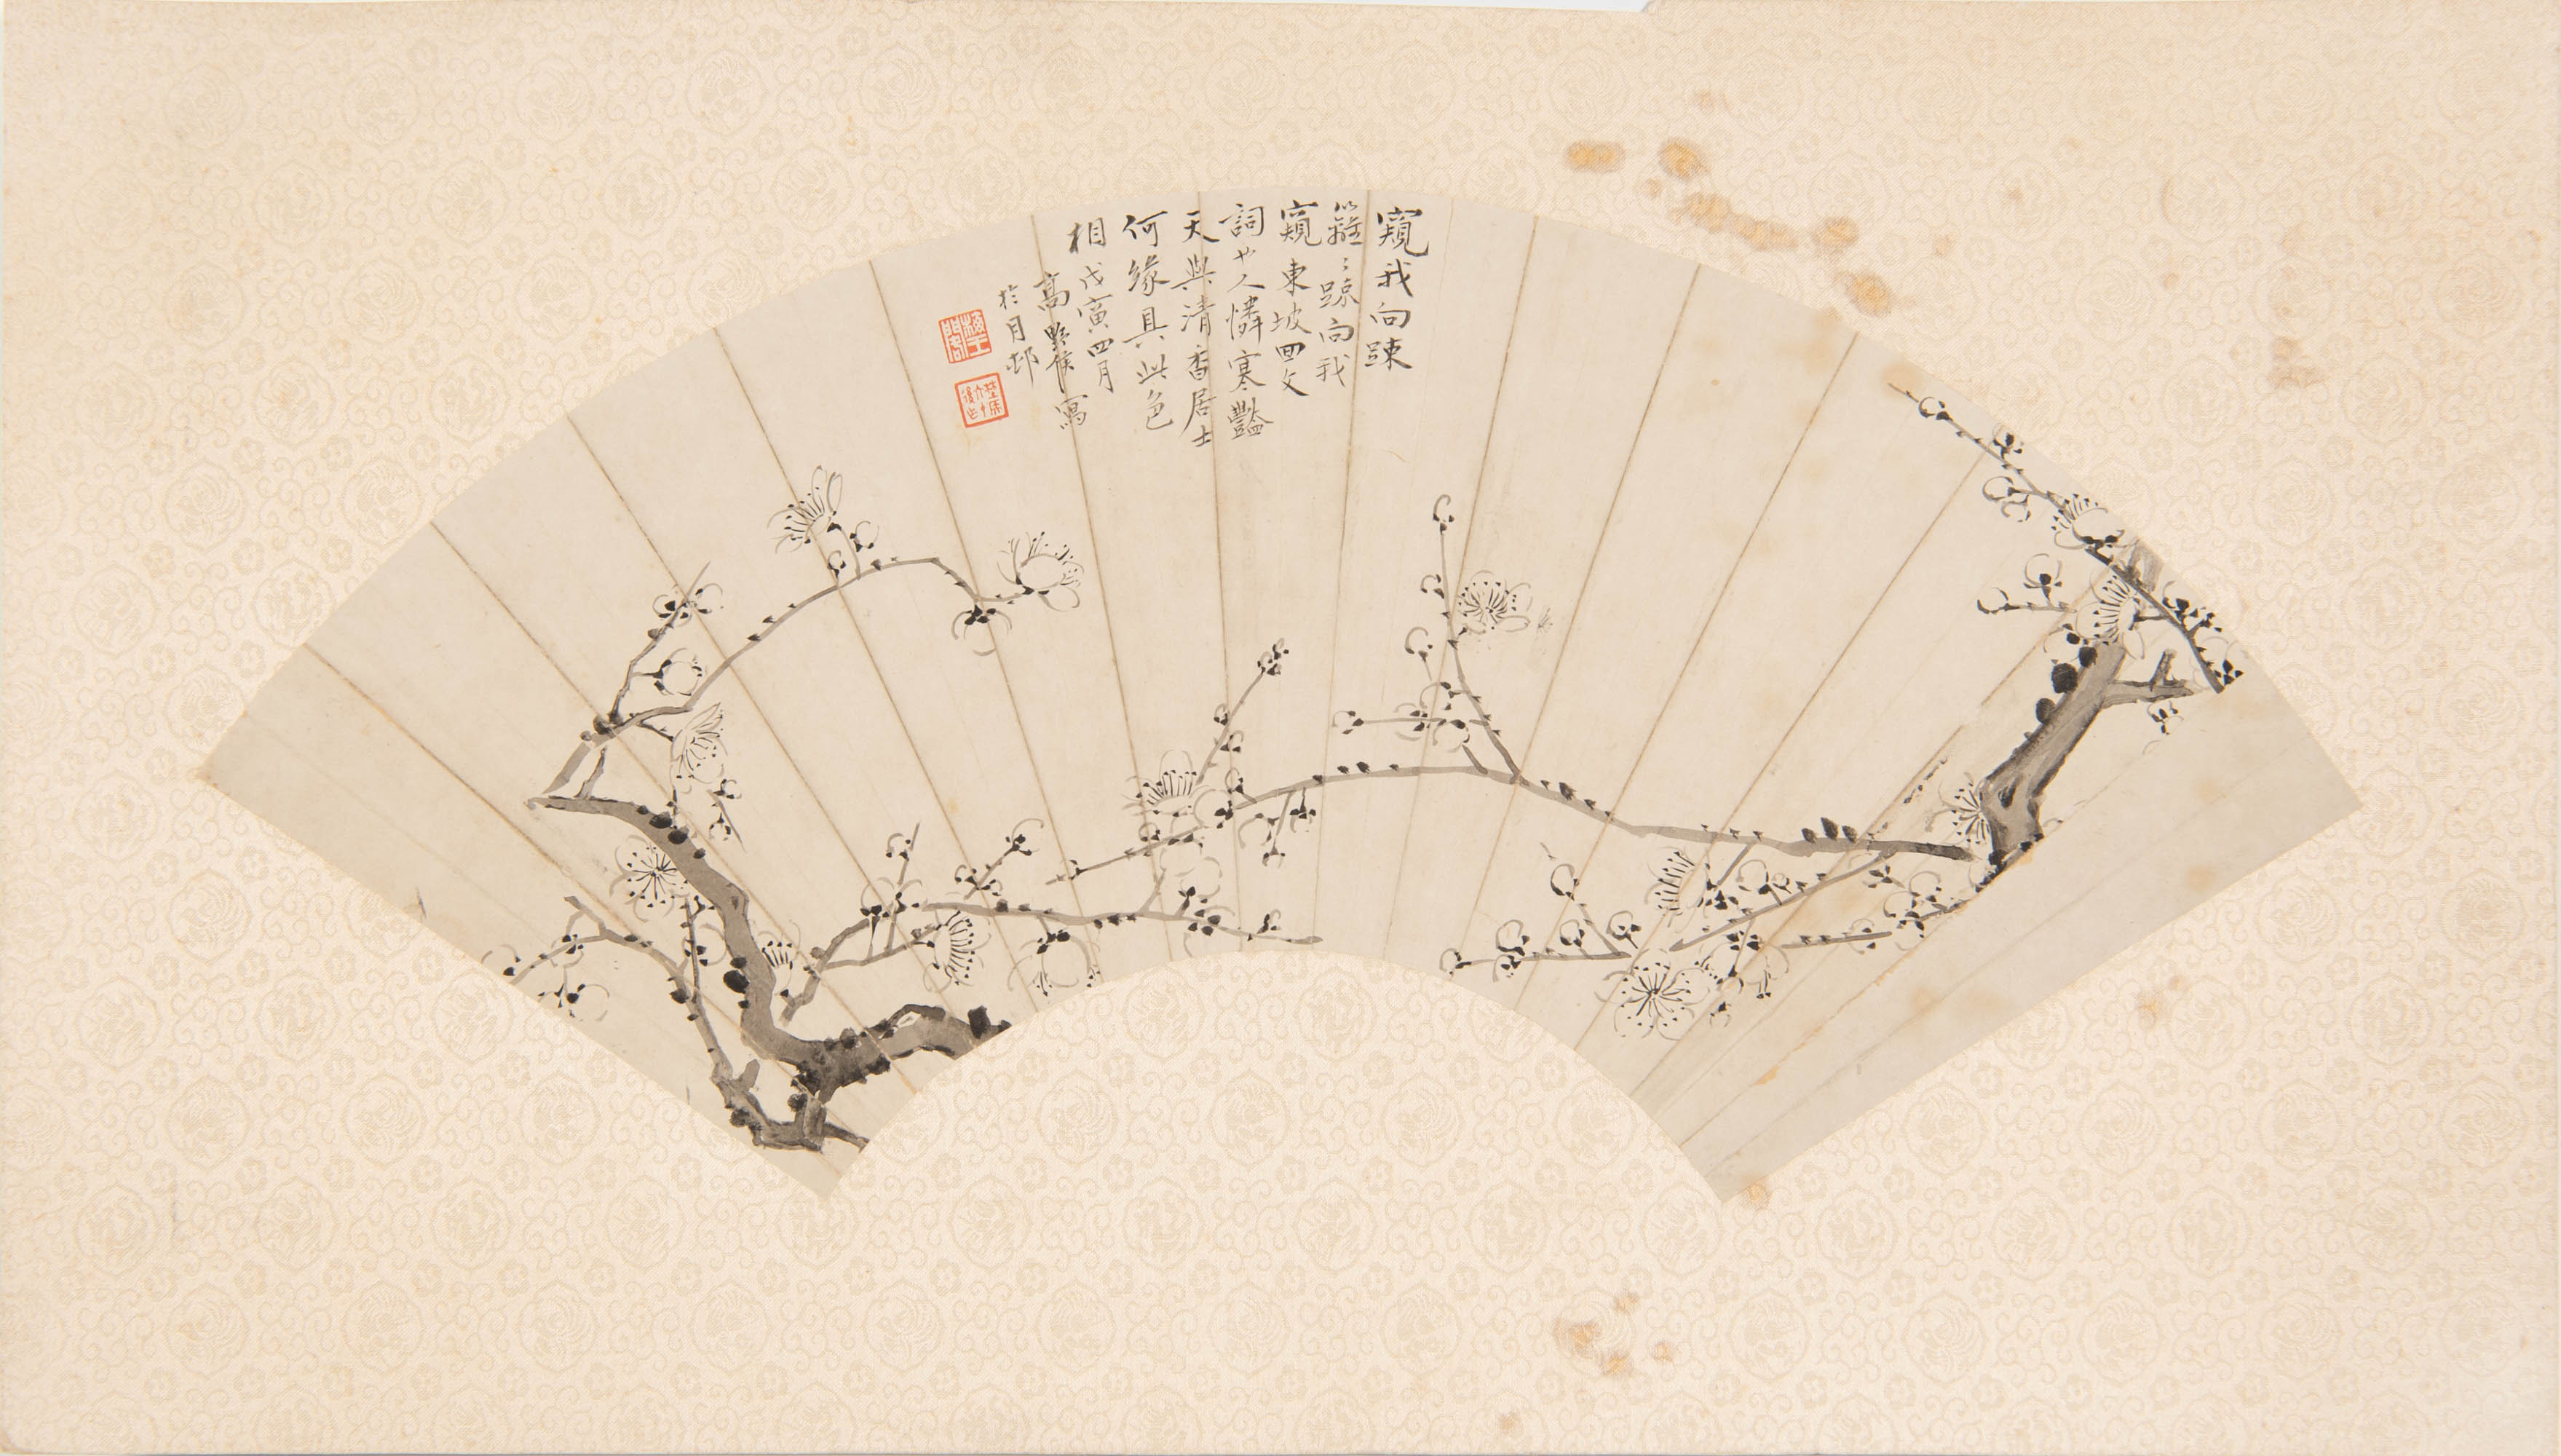 窺我向疎
籬〻踈向我
窺東坡回文
詞也人憐寒豔
天與清香居士
何緣具此色
相戊寅四月
高野侯寫
於月邨
梅王閣